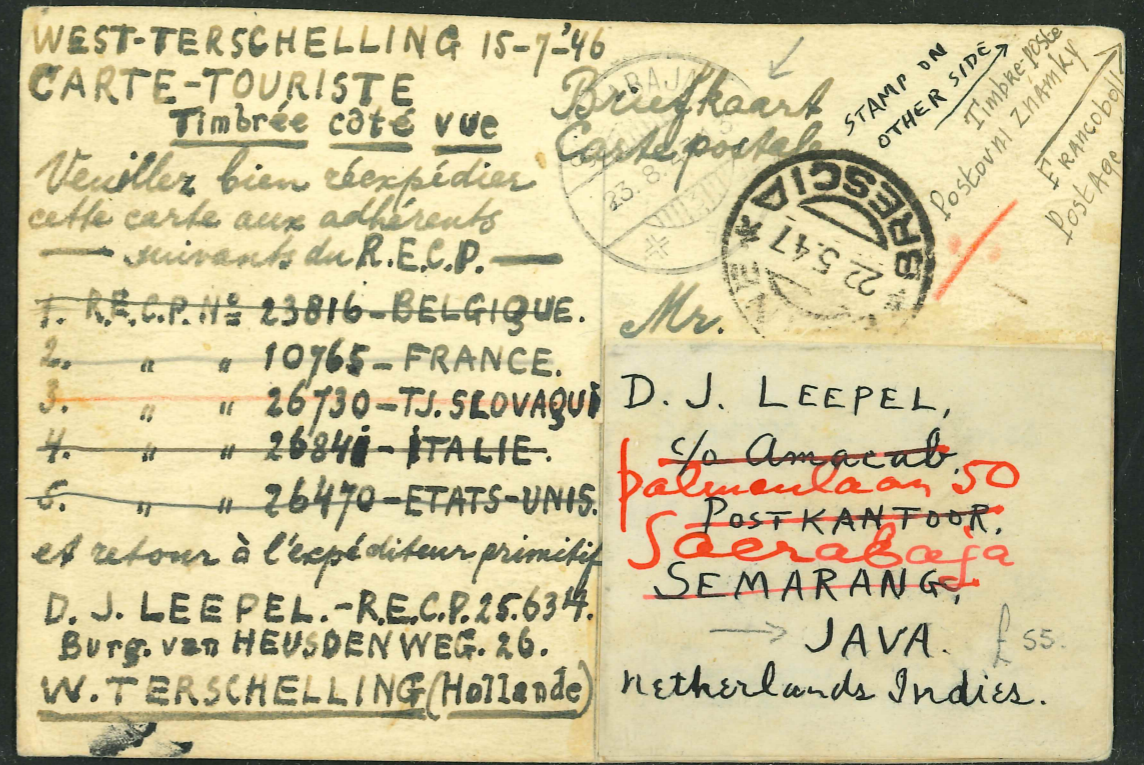 WEST-TERSCHELLING 15-7-'46
CARTE-TOURISTE
Timbrée côté vue
Veuillez bien réexpédier
cette carte aux adhérents
suivants du R.E.C.P.
1. R.E.C.P. No 23816-BELGIQUE.
2. " " 10765-FRANCE.
3. " " 26730-TJ. SLOVAQUI
4. " " 26841-ITALIE.
5. " " 26470-ETATS-UNIS.
et retour à l'expéditeur primitif
D. J. LEEPEL.-R.E.C.P. 25.634.
Burg. van HEUSDENWEG. 26.
W. TERSCHELLING (Hollande)
Briefkaart
Carte postale
23.8.
BRESCIA
22.5.47
STAMP ON
OTHER SIDE
Timbre-poste
Postovni Známky
Francobolli
PostAge
Mr.
D. J. LEEPEL,
c/o Amacab.
palmenlaan 50
POSTKANTOOR.
Soerabaja
SEMARANG,
JAVA.
£ 55.
Netherlands Indies.